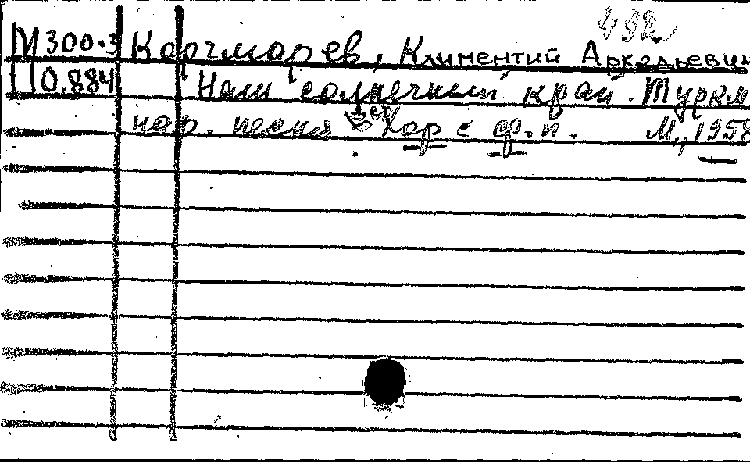 432
М 300-3 Корчмарев, Климентий Аркадьевич
10.884 Наш солнечный край. Туркм.
нар. песня Хор с ф.п. М., 1958